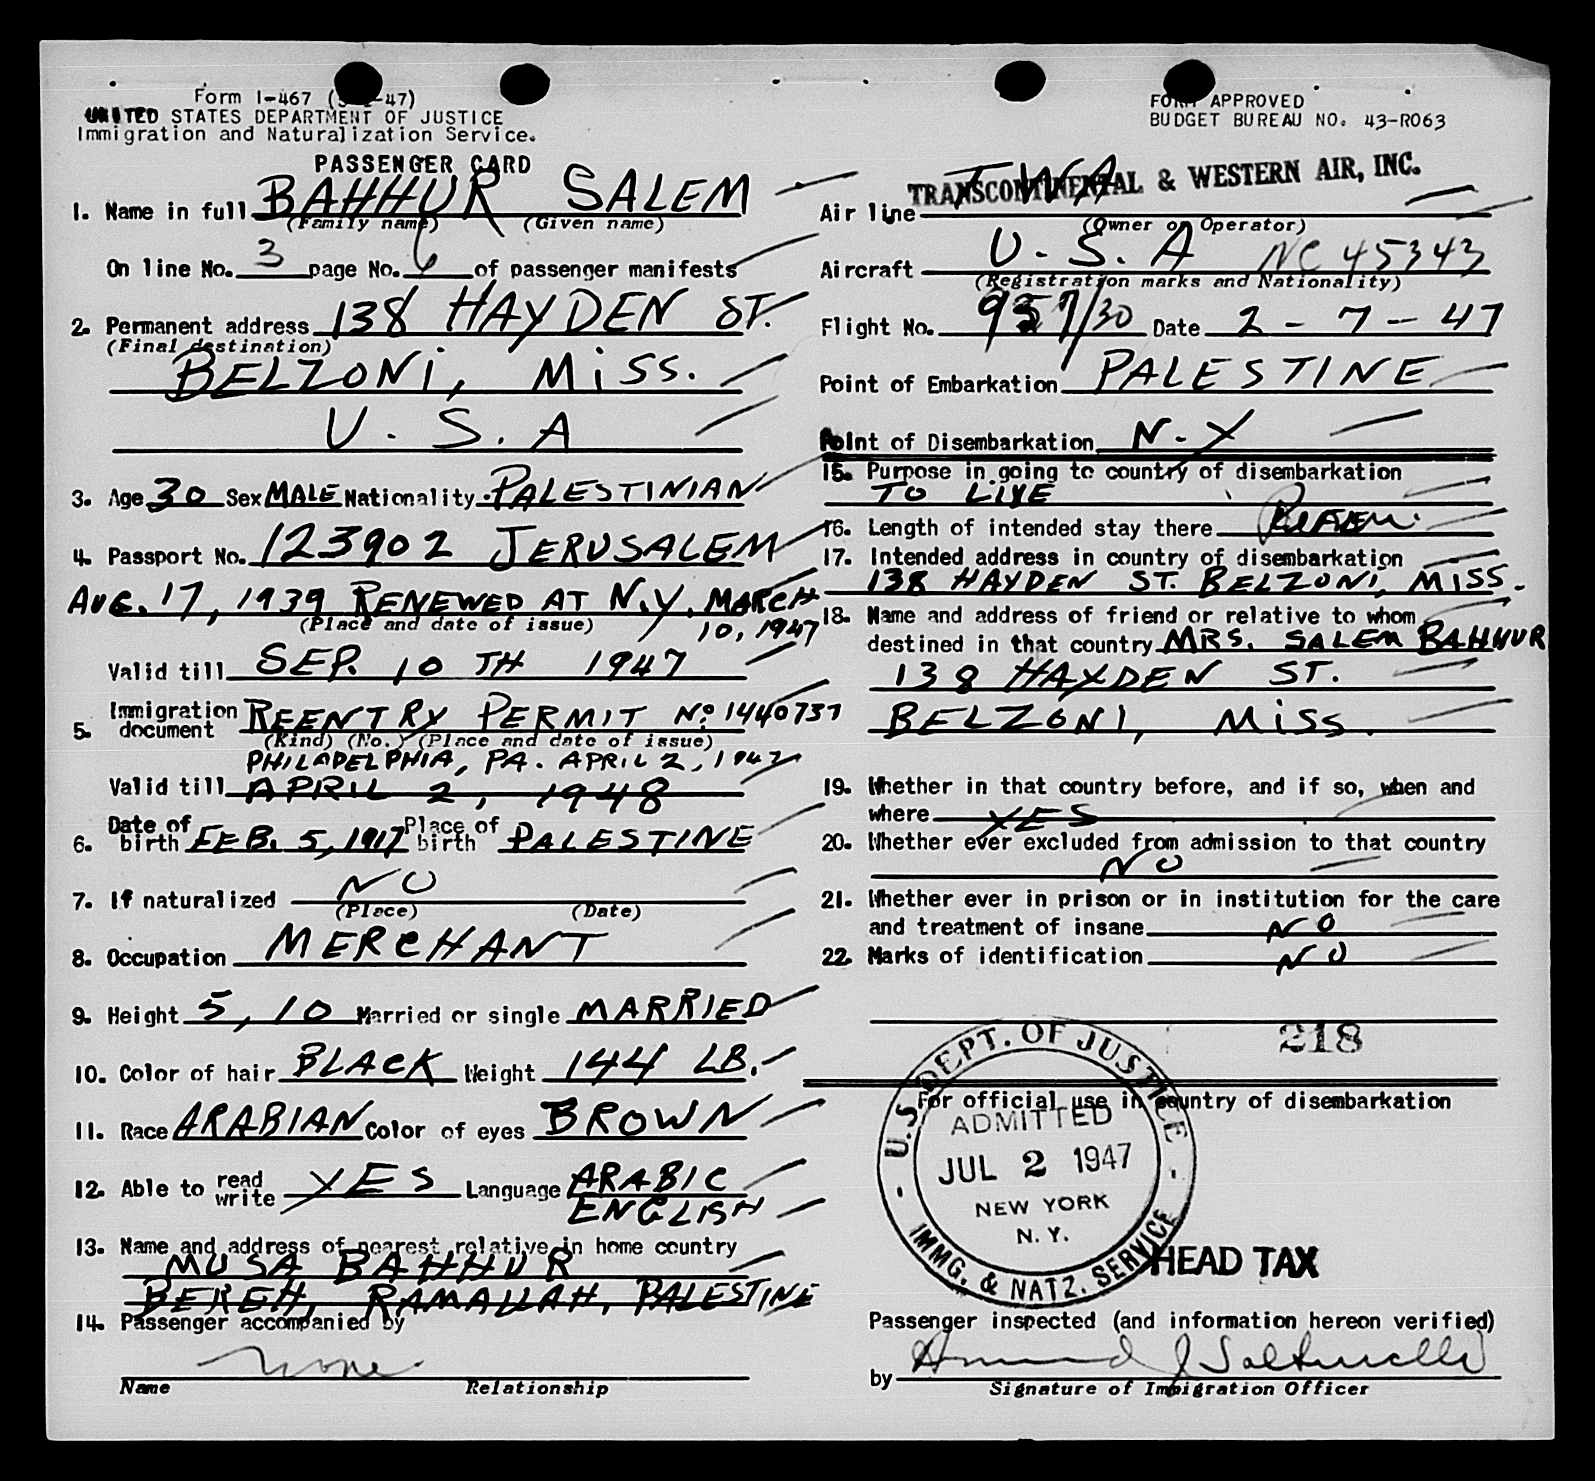 Form I-467 ( -47)
UNITED STATES DEPARTMENT OF JUSTICE
Immigration and Naturalization Service.
PASSENGER CARD
1. Name in full BAHHUR SALEM
(Family name) (Given name)
On line No. 3 page No. 6 of passenger manifests
2. Permanent address 138 HAYDEN ST.
(Final destination)
BELZONI, MISS.
U.S.A
3. Age 30 Sex MALE Nationality PALESTINIAN
4. Passport No. 123902 JERUSALEM
AUG. 17, 1939 RENEWED AT N.Y. MARCH
(Place and date of issue) 10, 1947
Valid till SEP. 10 TH 1947
5. Immigration document REENTRY PERMIT No 1440737
(Kind) (No.) (Place and date of issue)
PHILADELPHIA, PA. APRIL 2, 1947
Valid till APRIL 2, 1948
6. Date of birth FEB. 5, 1917 Place of birth PALESTINE
7. If naturalized NO
(Place) (Date)
8. Occupation MERCHANT
9. Height 5, 10 Married or single MARRIED
10. Color of hair BLACK Weight 144 LB.
11. Race ARABIAN Color of eyes BROWN
12. Able to read write YES Language ARABIC
ENGLISH
13. Name and address of nearest relative in home country
MUSA BAHHUR
BEREH, RAMALLAH, PALESTINE
14. Passenger accompanied by
None
Name Relationship
FORM APPROVED
BUDGET BUREAU NO. 43-R063
TRANSCONTINENTAL & WESTERN AIR, INC.
Air line TWA
(Owner or Operator)
Aircraft U.S.A NC 45343
(Registration marks and Nationality)
Flight No. 957/30 Date 2-7-47
Point of Embarkation PALESTINE
Point of Disembarkation N.Y
15. Purpose in going to country of disembarkation
TO LIVE
16. Length of intended stay there
17. Intended address in country of disembarkation
138 HAYDEN ST. BELZONI, MISS.
18. Name and address of friend or relative to whom
destined in that country MRS. SALEM BAHHUR
138 HAYDEN ST.
BELZONI, MISS.
19. Whether in that country before, and if so, when and
where YES
20. Whether ever excluded from admission to that country
NO
21. Whether ever in prison or in institution for the care
and treatment of insane NO
22. Marks of identification NO
218
For official use in country of disembarkation
U.S. DEPT. OF JUSTICE
ADMITTED
JUL 2 1947
NEW YORK
N.Y.
IMMG. & NATZ. SERVICE
HEAD TAX
Passenger inspected (and information hereon verified)
by
Signature of Immigration Officer